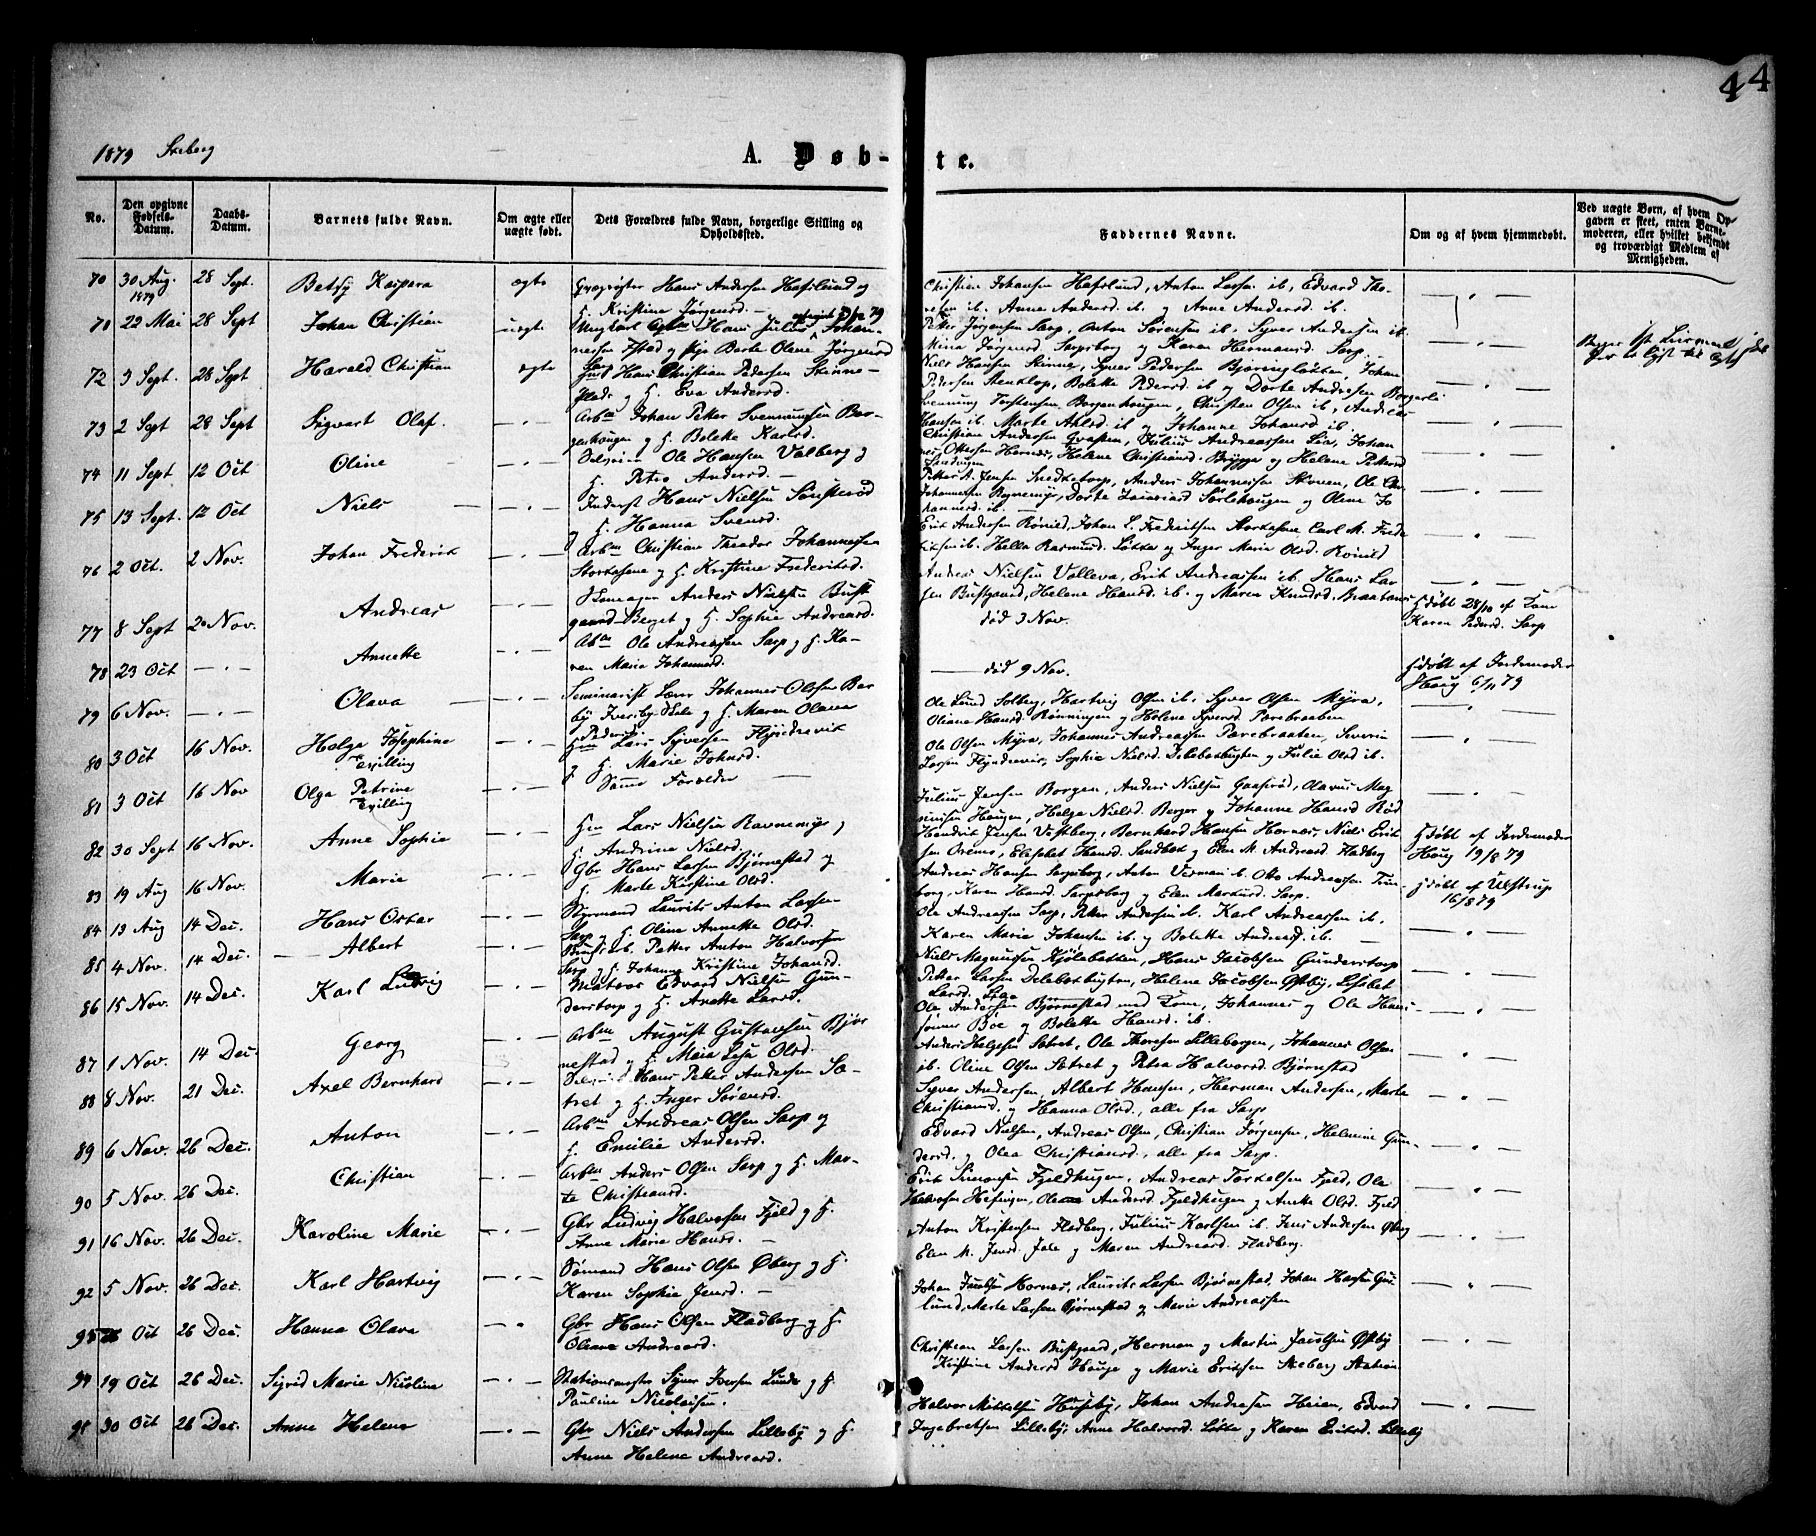 4 4
1879 Skeberg
A. Døb-te.
No.
Den opgivne Fødsels-Datum.
Daabs-Datum.
Barnets fulde Navn.
Om ægte eller uægte født.
Dets Forældres fulde Navn, borgerlige Stilling og Opholdssted.
Faddernes Navne.
Om og af hvem hjemmedøbt.
Ved uægte Børn, af hvem Opgaven er skeet, enten Barnemoderen, eller hvilket bekjendt og troværdigt Medlem af Menigheden.
70 30 Aug. 1879 28 Sept. Betsy Kaspara ægte Hans Andersen Hafslund og
H. Kristine Jørgensd. —
Christian Johansen Hafslund, Anton Larsen ib, Edvard Tho-
resen ib. Anne Andersd ib. og Anne Andersd. ib.
71 22 Mai 28 Sept Johan Christian uægte Ungkarl Hans Julius Johan-
nessen og Pige Berte Oline Jørgensd
Petter Jørgensen Sarp, Anton Sørensen ib, Syver Andersen ib.
Mina Jørgensd Sarpsborg og Karen Hermansd. Sarp.
72 3 Sept. 28 Sept Harald Christian ægte Hans Christian Pedersen Skinne-
H. Eva Andersd.
Niels Hansen Skinne, Syver Pedersen Bjørengløkken, Johan
Pedersen Stenklop, Bolette Pedersd. ib og Dorte Andersen Borgerli
73 2 Sept 28 Sept Sigvart Olaf. — . — Arbm Johan Petter Svenningsen Bor-
genhougen og H. Bolette Karlsd.
Svenning Torstensen Borgenhougen, Christen Olsen ib, Andreas
Hansen ib. Marte Ahlsd. ib og Johanne Johansd ib.
74 11 Sept 12 Oct Oline — . — Ole Hansen Valberg og
H. Petra Andersd. —
Christian Andersen Grasten, Julius Andreassen Lia, Johan-
nes Ottersen Hernes, Helene Christiansd. Brygge og Helene Pettersd
Sandvigen
75 13 Sept. 12 Oct Niels — . — Inderst Hans Nielsen Sønsterød
og H. Hanna Svensd.
Petter A. Jensen Andreas Johannessen Skinnen, Ole Chr
Johannesen og Oline Jo
hannesd ib. —
76 2 Oct. 2 Nov. Johan Frederik — . — Arbm Christian Theodor Johannesen
Stortasene og H. Kristine Frederiksd.
Erik Andersen Rønild, Johan S. Frederiksen Stortasene Carl M. Frede
riksen ib. Hella Rasmusd. Løkka og Inger Marie Olsd. Roinild
77 8 Sept 2 Nov. Andreas — . — Skomager Anders Nielsen Bust
gaard-Berget og H. Sophie Andreasd.
Andreas Nielsen Volleva, Erik Andreassen ib. Hans Lar
sen Bustgaard, Helene Hansd. ib. og Maren Knudsd. Braatene
78 23 Oct — . — Annette — . — Arbm Ole Andreassen Sarp og H. Ka-
ren Marie Johannesd.
død 3 Nov.
Hjdøbt 28/10 af Kone
Karen Pedersd. Sarp
79 6 Nov. — . — Olava — . — Seminarist Lærer Johannes Olsen Bar
by og H. Maren Olava
Pedersd.
død 9 Nov.
Hjdøbt af Jordemoder
Houg 6/11 79
80 3 Oct 16 Nov. Helga Josephine
Tvilling
— . — Gbr Lars Syversen Flyndrevik
og H. Marie Johnsd.
Ole Lund Solberg, Hartvig Olsen ib, Syver Olsen Myra,
Oliane Hansd. Rønningen og Helene Syversd. Parebraaten
81 3 Oct 16 Nov Olga Petrine
Tvilling
— . — Samme Forældre —
Ole Olsen Myra, Johannes Andreassen Parebraaten, Severin
Larsen Flyndrevik, Sophie Nielsd. Delebekbugten og Julie Olsd ib.
82 30 Sept 16 Nov. Anne Sophie — . — Lars Nielsen Ravnemyr og
H. Andrine Nielsd.
Julius Jensen Borgen, Anders Nielsen Gaaserød, Olavus Mag
nussen Haugen, Helga Nielsd. Berger og Johanne Hansd Rød
83 19 Aug 16 Nov. Marie — . — Gbr Hans Larsen Bjørnestad og
H. Marte Kirstine Olsd.
Hendrik Jensen Vestberg, Bernhard Hansen Hornes, Niels Erik
sen Orenes, Elisabet Hansd. Sandbek og Elen M. Andreasd Fladberg
Hjdøbt af Jordemoder
Houg 19/8 79
84 13 Aug 14 Dec. Hans Oskar — . — Styrmand Laurits Anton Larsen
Sarp og H. Oline Annette Olsd.
Andreas Hansen Sarpsborg, Anton ib. Otto Andreassen Tune-
borg, Karen Hansd. Sarpsborg og Elen Markusd. Sarp.
Hjdøbt af Ulstrup
16/8 79
85 4 Nov. 14 Dec. Albert — . — Petter Anton Halvorsen
Sarp og H. Johanne Kristine Johansd.
Ole Andreassen Sarp, Petter Andersen ib. Karl Andreassen ib.
Karen Marie Johansen ib. og Bolette Andreasd. ib. —
86 15 Nov. 14 Dec. Karl Ludvig — . — Matros Edvard Nielsen Gun-
derstorp og H. Anette Larsd.
Niels Magnussen Kjølebakken, Hans Jacobsen Gunderstorp
Petter Larsen Delebekbugten, Helene Jacobsen Østby, Lisabet
Larsd.
87 1 Nov. 14 Dec. Georg — . — Arbm August Gustavsen Bjør
nestad og H. Maia Lese Olsd.
Ole Andersen Bjørnestad med Kone, Johannes og Ole Hans-
sønner Bøe og Bolette Hansd. ib.
88 8 Nov. 21 Dec. Axel Bernhard — . — Hans Petter Andersen Sæ-
tret og H. Inger Sørensd.
Anders Helgesen Sætret, Ole Thoresen Lillebergen, Johannes Olsen
ib. Oline Olsen Sætret og Petra Halvorsd. Bjørnestad
89 6 Nov. 26 Dec. Anton — . — Arbm Andreas Olsen Sarp og
H. Emilie Andersd.
Syver Andersen, Albert Hansen, Herman Andersen, Marte
Christiansd. og Hanna Olsd, alle fra Sarp
90 5 Nov. 26 Dec. Christian — . — Arbm Anders Olsen Sarp og H. Mar-
te Christiansd.
Edvard Nielsen, Andreas Olsen, Christian Jørgensen, Helmine Gun-
dersd. og Olea Christiansd., alle fra Sarp.
91 16 Nov. 26 Dec. Karoline Marie — . — Gbr Ludvig Halvorsen Fjeld og H.
Anne Marie Hansd. —
Erik Simonsen Fjeldhugen, Andreas Torkelsen Fjeld, Ole
Halvorsen Hesingen, Andersd. Fjeldhugen og Anette Olsd. Fjeld
92 5 Nov. 26 Dec. Karl Hartvig — . — Sømand Hans Olsen Øberg og H.
Karen Sophie Jensd. —
Anton Kristensen Fladberg, Julius Karlsen ib. Jens Andersen Øberg
Elen M. Jensd. Jale og Maren Andreasd. Fladberg.
93 26 Oct 26 Dec. Hanna Olava — . Gbr Hans Olsen Fladberg og H.
Oliane Andreasd.
Johan Juulsen Hornes, Laurits Larsen Bjørnestad, Johan Hansen Gu-
lund, Marte Larsen Bjørnestad og Marie Andreassen
94 19 Oct 26 Dec. Sigrid Marie Nicoline — . — Stationsmester Syver Iversen Lunde og H.
Pauline Nicolaisen.
Christian Larsen Bustgaard, Herman og Martin Jacobsen Østby
Kristine Andersd Hauge og Marie Eriksen Skeberg Station
95 30 Oct 26 Dec. Anne Helene — . — Gbr Niels Andersen Lilleby og H.
Anne Helene Andreasd.
Halvor Mikkelsen Huseby, Johan Andreasen Heien, Edvard
Ingebretsen Lilleby, Anne Halvorsd. Løkke og Karen Eriksd. Lilleby